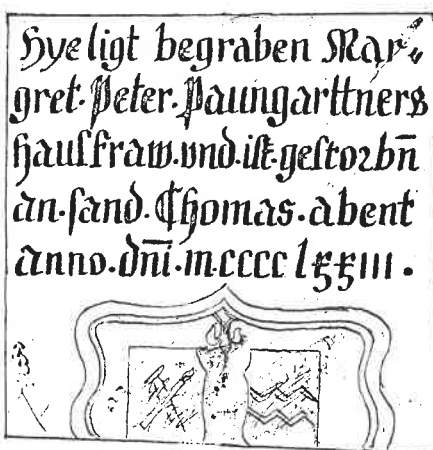 Hye ligt begraben Mar⸗
gret · Peter · Paungarttners
hausfraw · vnd · ist · gestorbn̄
an · sand · Thomas · abent
anno · dn̄i · m · cccc lxxiii ·